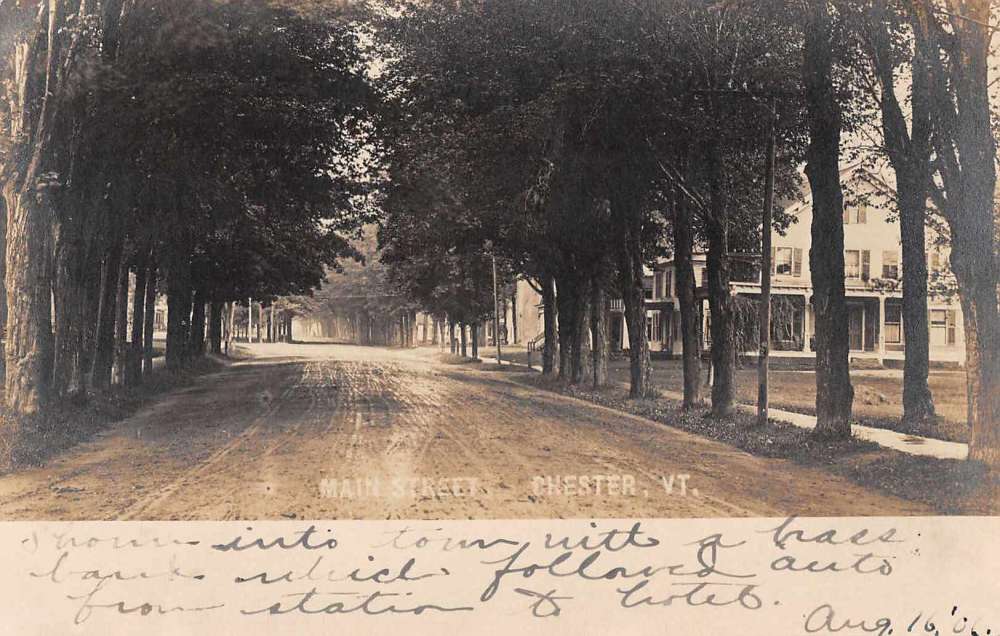 MAIN STREET. CHESTER, VT.
into town with a brass
band which followed auto
from station to hotel.
Aug. 16,